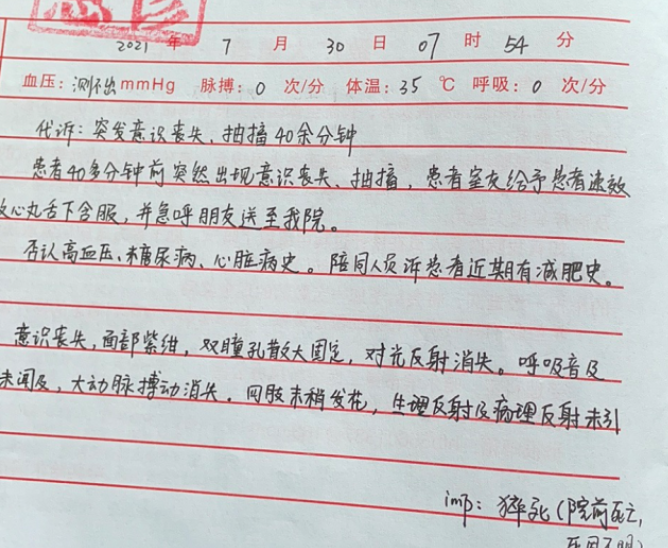 2021 年 7 月 30 日 07 时 54 分
血压: 测不出 mmHg 脉搏: 0 次/分 体温: 35 ℃ 呼吸: 0 次/分
代诉: 突发意识丧失、抽搐40余分钟
患者40多分钟前突然出现意识丧失、抽搐, 患者室友给予患者速效
救心丸舌下含服, 并急呼朋友送至我院。
否认高血压、糖尿病、心脏病史。陪同人员诉患者近期有减肥史。
意识丧失, 面部紫绀, 双瞳孔散大固定, 对光反射消失。呼吸音及
未闻及, 大动脉搏动消失. 四肢末梢发花, 生理反射及病理反射未引
imp: 猝死(院前死亡,
死因不明)